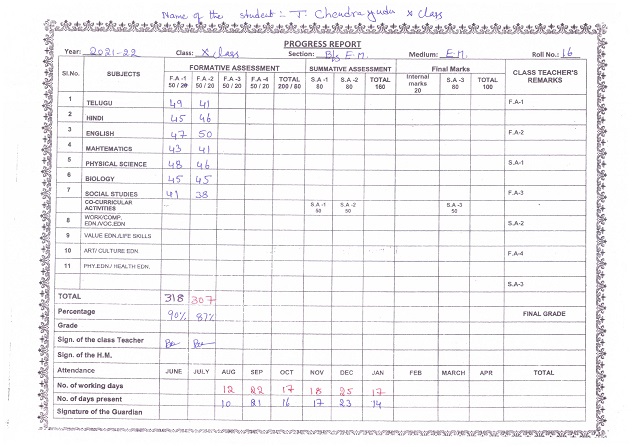 Name of the student :- T. Chendrayudu X Class
PROGRESS REPORT
Year: 2021-22 Class: X class Section: B/s E.M. Medium: E.M. Roll No.: 16
Sl.No. SUBJECTS FORMATIVE ASSESSMENT SUMMATIVE ASSESSMENT Final Marks CLASS TEACHER'S REMARKS
F.A -1 50 / 20 F.A -2 50 / 20 F.A -3 50 / 20 F.A -4 50 / 20 TOTAL 200 / 80 S.A -1 80 S.A -2 80 TOTAL 160 Internal marks 20 S.A -3 80 TOTAL 100
1 TELUGU 49 41 F.A-1
2 HINDI 45 46
3 ENGLISH 47 50 F.A-2
4 MAHTEMATICS 43 41
5 PHYSICAL SCIENCE 48 46 S.A-1
6 BIOLOGY 45 45
7 SOCIAL STUDIES 41 38 F.A-3
CO-CURRICULAR ACTIVITIES S.A -1 50 S.A -2 50 S.A -3 50
8 WORK/COMP. EDN./VOC.EDN S.A-2
9 VALUE EDN./LIFE SKILLS
10 ART/ CULTURE EDN F.A-4
11 PHY.EDN./ HEALTH EDN.
S.A-3
TOTAL 318 307
Percentage 90% 87% FINAL GRADE
Grade
Sign. of the class Teacher
Sign. of the H.M.
Attendance JUNE JULY AUG SEP OCT NOV DEC JAN FEB MARCH APR TOTAL
No. of working days 12 22 17 18 25 17
No. of days present 10 21 16 17 23 14
Signature of the Guardian